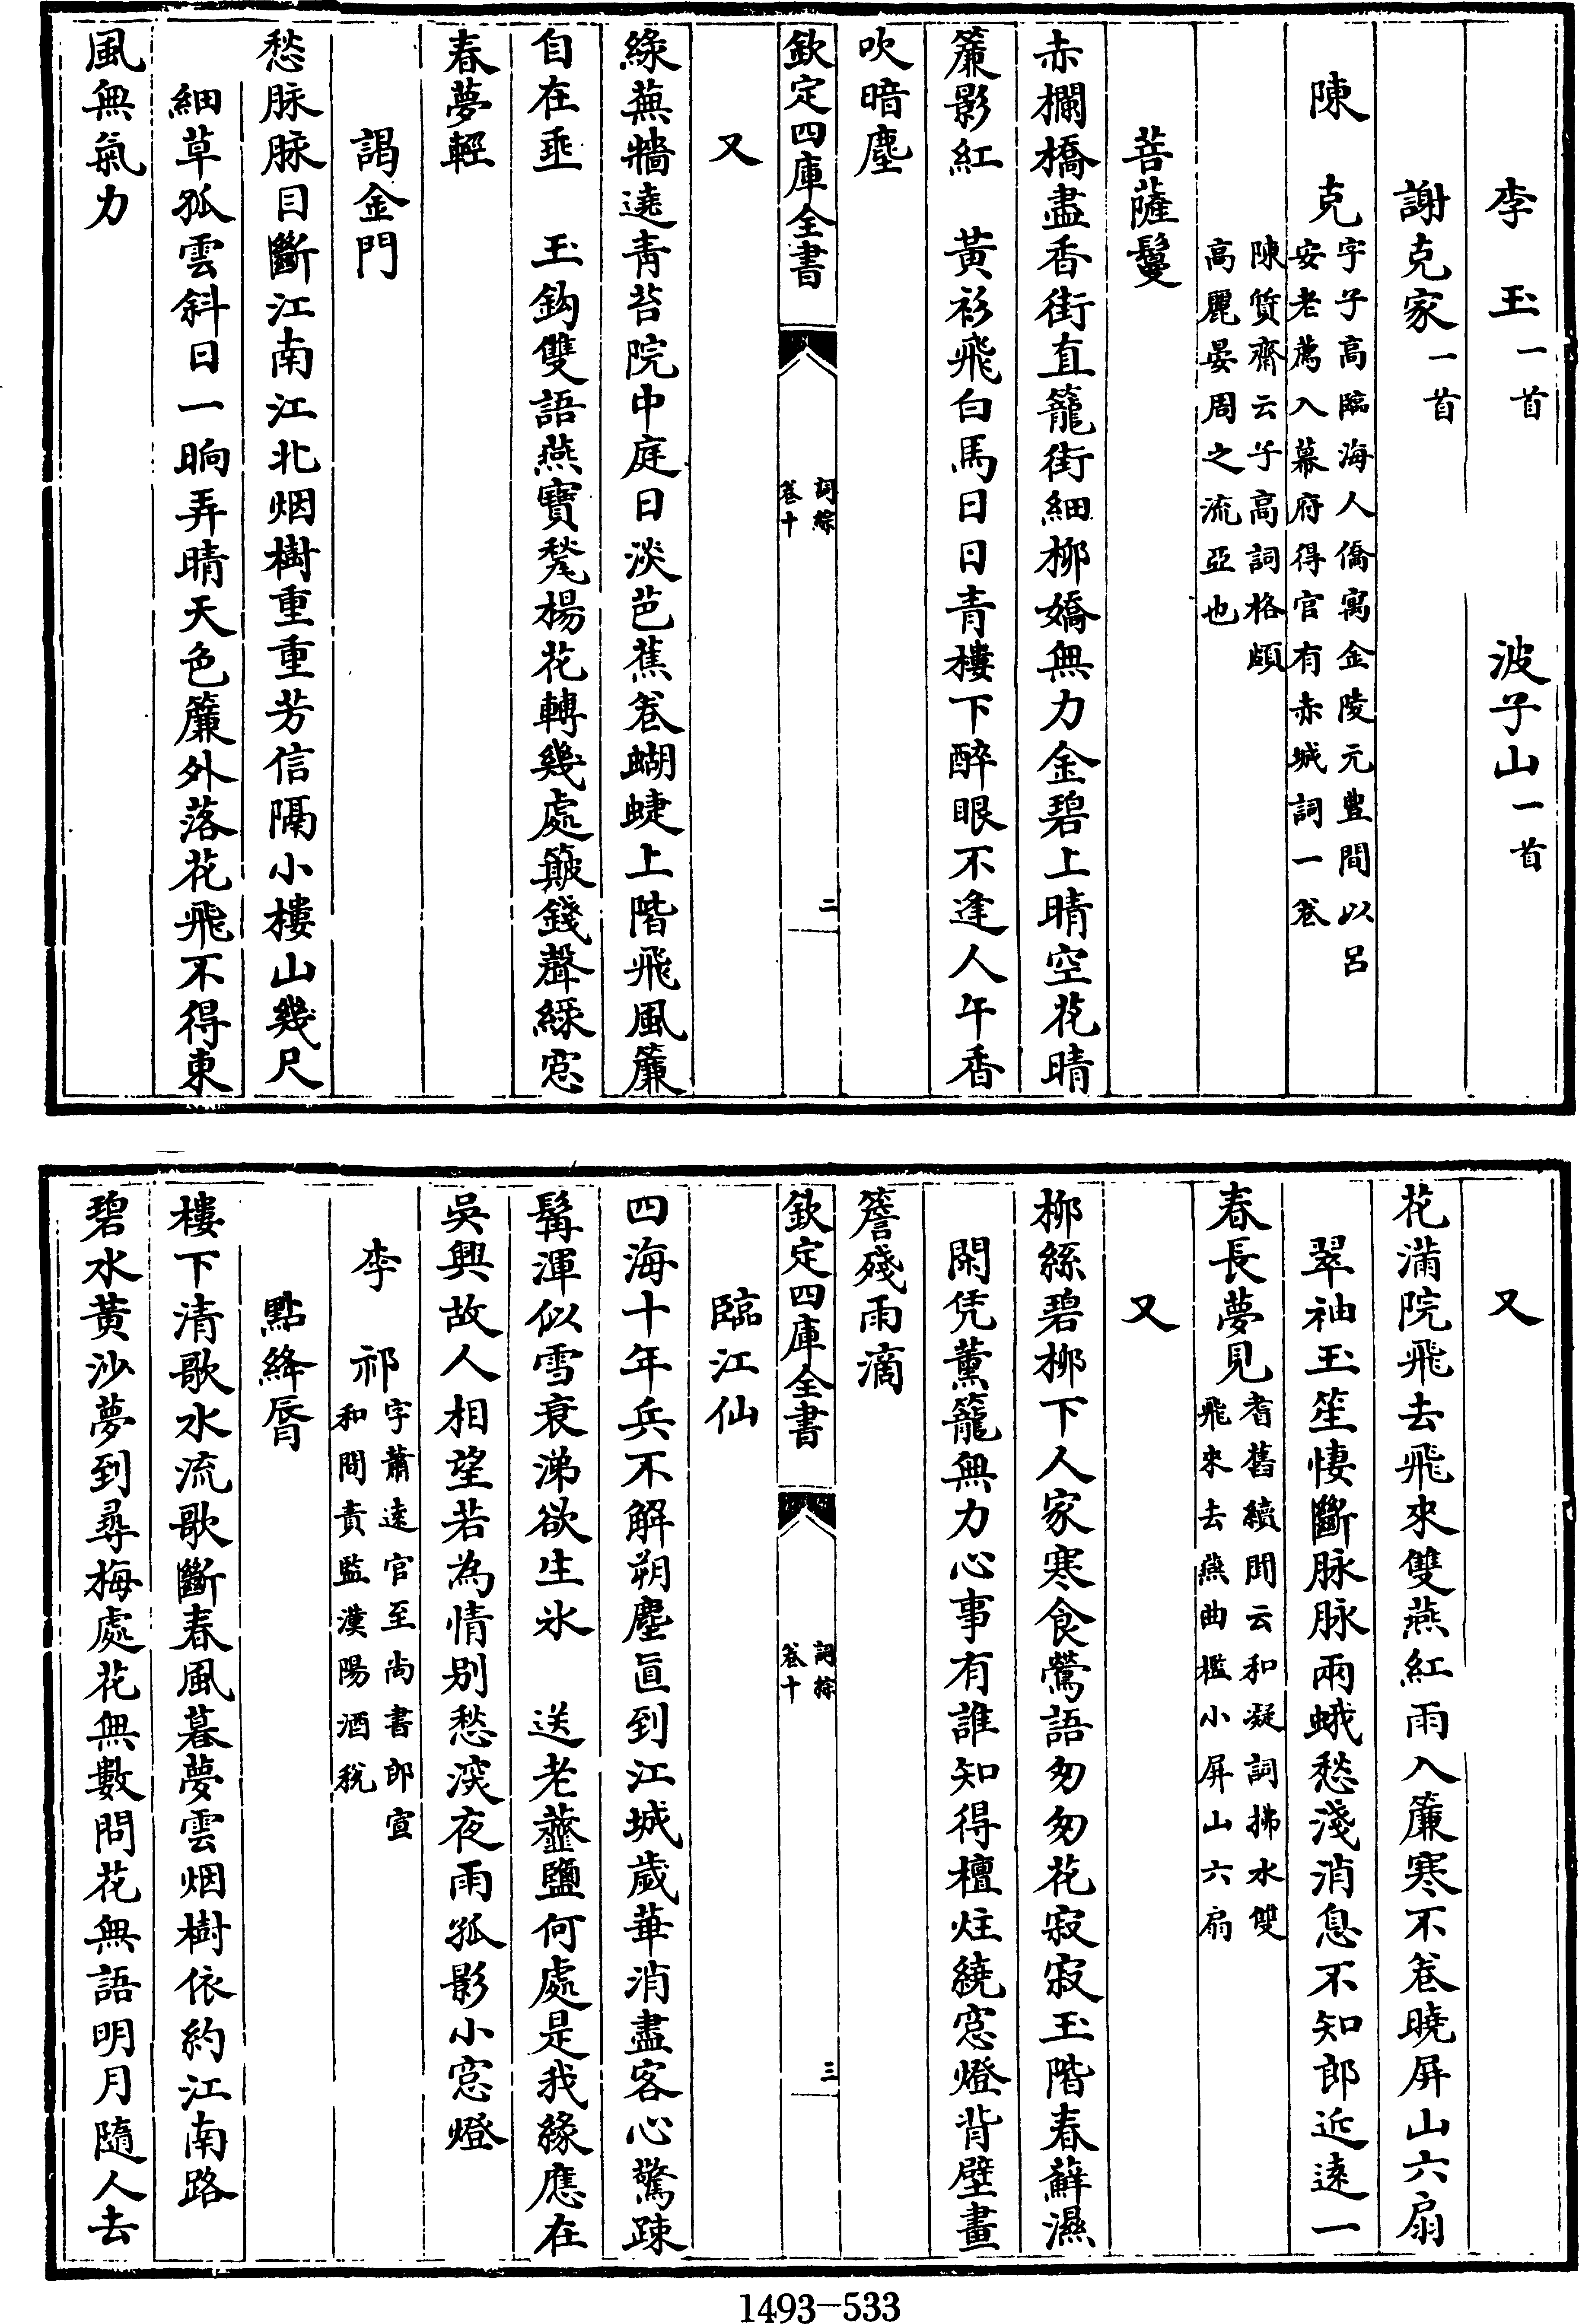 李　玉一首　　波子山一首
謝克家一首
陳　克字子高臨海人僑寓金陵元豊間以呂
安老薦入幕府得官有赤城詞一卷
陳質齋云子高詞格頗
高麗晏周之流亞也
菩薩鬘
赤欄橋盡香街直籠街細柳嬌無力金碧上晴空花晴
簾影紅　黄衫飛白馬日日青樓下醉眼不逢人午香
吹暗塵
欽定四庫全書　詞綜
卷十　二
又
綠蕪牆遶青苔院中庭日淡芭蕉卷蝴蜨上階飛風簾
自在垂　玉鈎雙語燕寶甃楊花轉幾處簸錢聲綠窓
春夢輕
謁金門
愁脉脉目斷江南江北烟樹重重芳信隔小樓山幾尺
細草孤雲斜日一晌弄晴天色簾外落花飛不得東
風無氣力
又
花滿院飛去飛來雙燕紅雨入簾寒不卷曉屏山六扇
翠袖玉笙悽斷脉脉兩蛾愁淺消息不知郎近遠一
春長夢見耆舊續聞云和凝詞拂水雙
飛來去燕曲檻小屏山六扇
又
柳絲碧柳下人家寒食鶯語匆匆花寂寂玉階春蘚濕
閑凭薰籠無力心事有誰知得檀炷繞窓燈背壁畫
簷殘雨滴
欽定四庫全書　詞綜
卷十　三
臨江仙
四海十年兵不解朔塵直到江城歲華消盡客心驚疎
髯渾似雪衰涕欲生氷　送老虀鹽何處是我緣應在
吳興故人相望若為情别愁深夜雨孤影小窓燈
李　祁字蕭遠官至尚書郎宣
和間責監漢陽酒稅
點絳脣
樓下清歌水流歌斷春風暮夢雲烟樹依約江南路
碧水黄沙夢到尋梅處花無數問花無語明月隨人去
1493-533